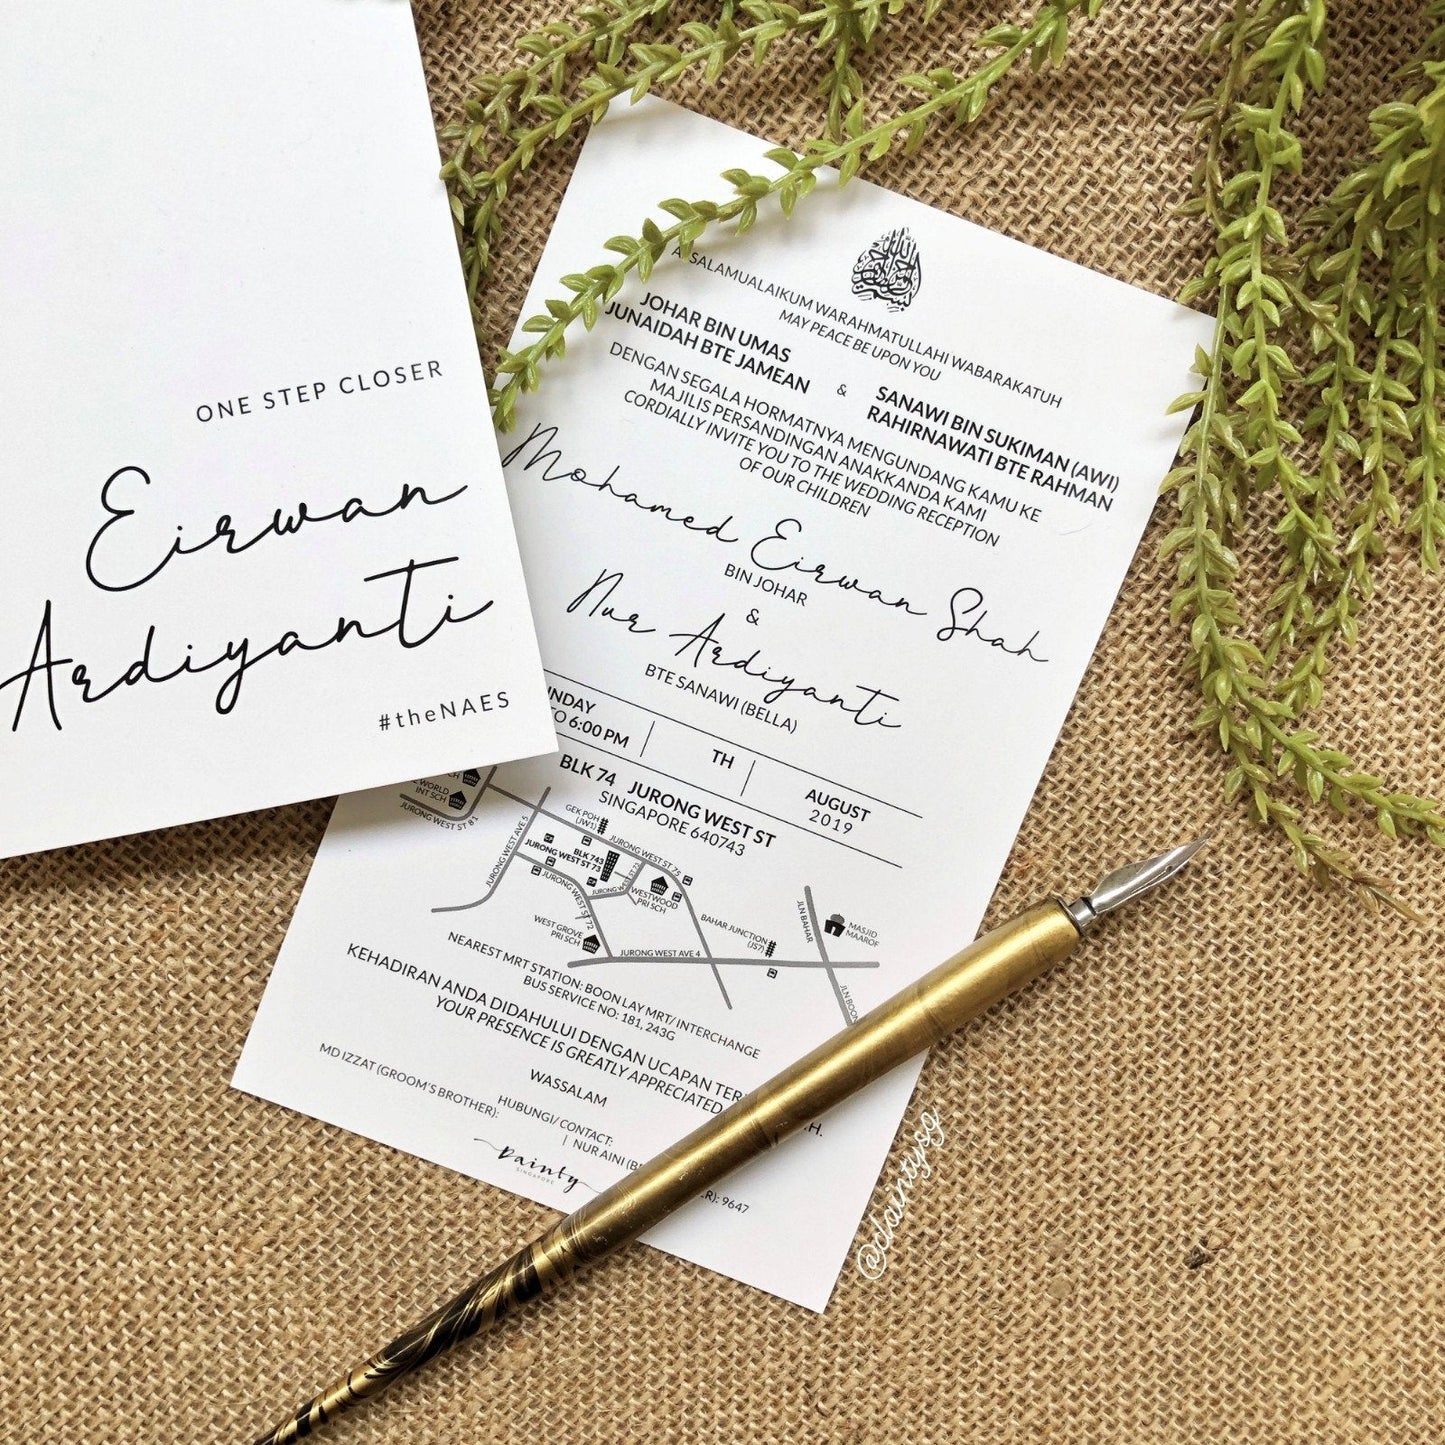 ONE STEP CLOSER
Eirwan
Ardiyanti
#theNAES
ASSALAMUALAIKUM WARAHMATULLAHI WABARAKATUH
MAY PEACE BE UPON YOU
JOHAR BIN UMAS
JUNAIDAH BTE JAMEAN
&
SANAWI BIN SUKIMAN (AWI)
RAHIRNAWATI BTE RAHMAN
DENGAN SEGALA HORMATNYA MENGUNDANG KAMU KE
MAJILIS PERSANDINGAN ANAKKANDA KAMI
CORDIALLY INVITE YOU TO THE WEDDING RECEPTION
OF OUR CHILDREN
Mohamed Eirwan Shah
BIN JOHAR
&
Nur Ardiyanti
BTE SANAWI (BELLA)
NDAY
TO 6:00 PM
TH
AUGUST
2019
BLK 74 JURONG WEST ST
SINGAPORE 640743
WORLD
INT SCH
JURONG WEST ST 81
JURONG WEST AVE 5
GEK POH
(JW1)
JURONG WEST ST 75
BLK 743
JURONG WEST ST 73
JURONG WEST ST 72
WESTWOOD
PRI SCH
WEST GROVE
PRI SCH
BAHAR JUNCTION
(JS7)
JURONG WEST AVE 4
JLN BAHAR
MASJID
MAAROF
JLN BOON
NEAREST MRT STATION: BOON LAY MRT/ INTERCHANGE
BUS SERVICE NO: 181, 243G
KEHADIRAN ANDA DIDAHULUI DENGAN UCAPAN TER
YOUR PRESENCE IS GREATLY APPRECIATED
WASSALAM
HUBUNGI/ CONTACT:
MD IZZAT (GROOM'S BROTHER): | NUR AINI (B
R): 9647
Dainty
SINGAPORE
@daintysg